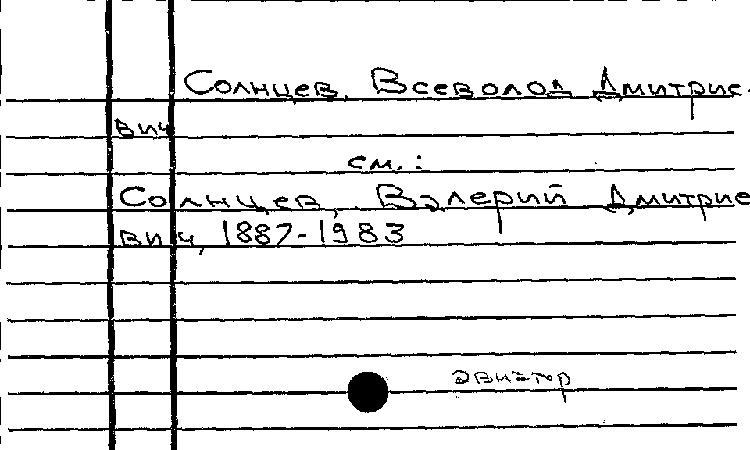 Солнцев, Всеволод Дмитрие-
вич
см.:
Солнцев, Валерий Дмитрие
вич, 1887-1983
авиатор